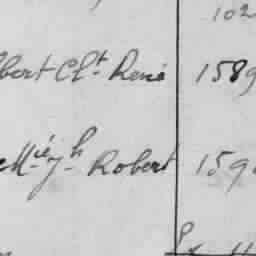 102
bert Cht René 1589
Mie Jh Robert 159